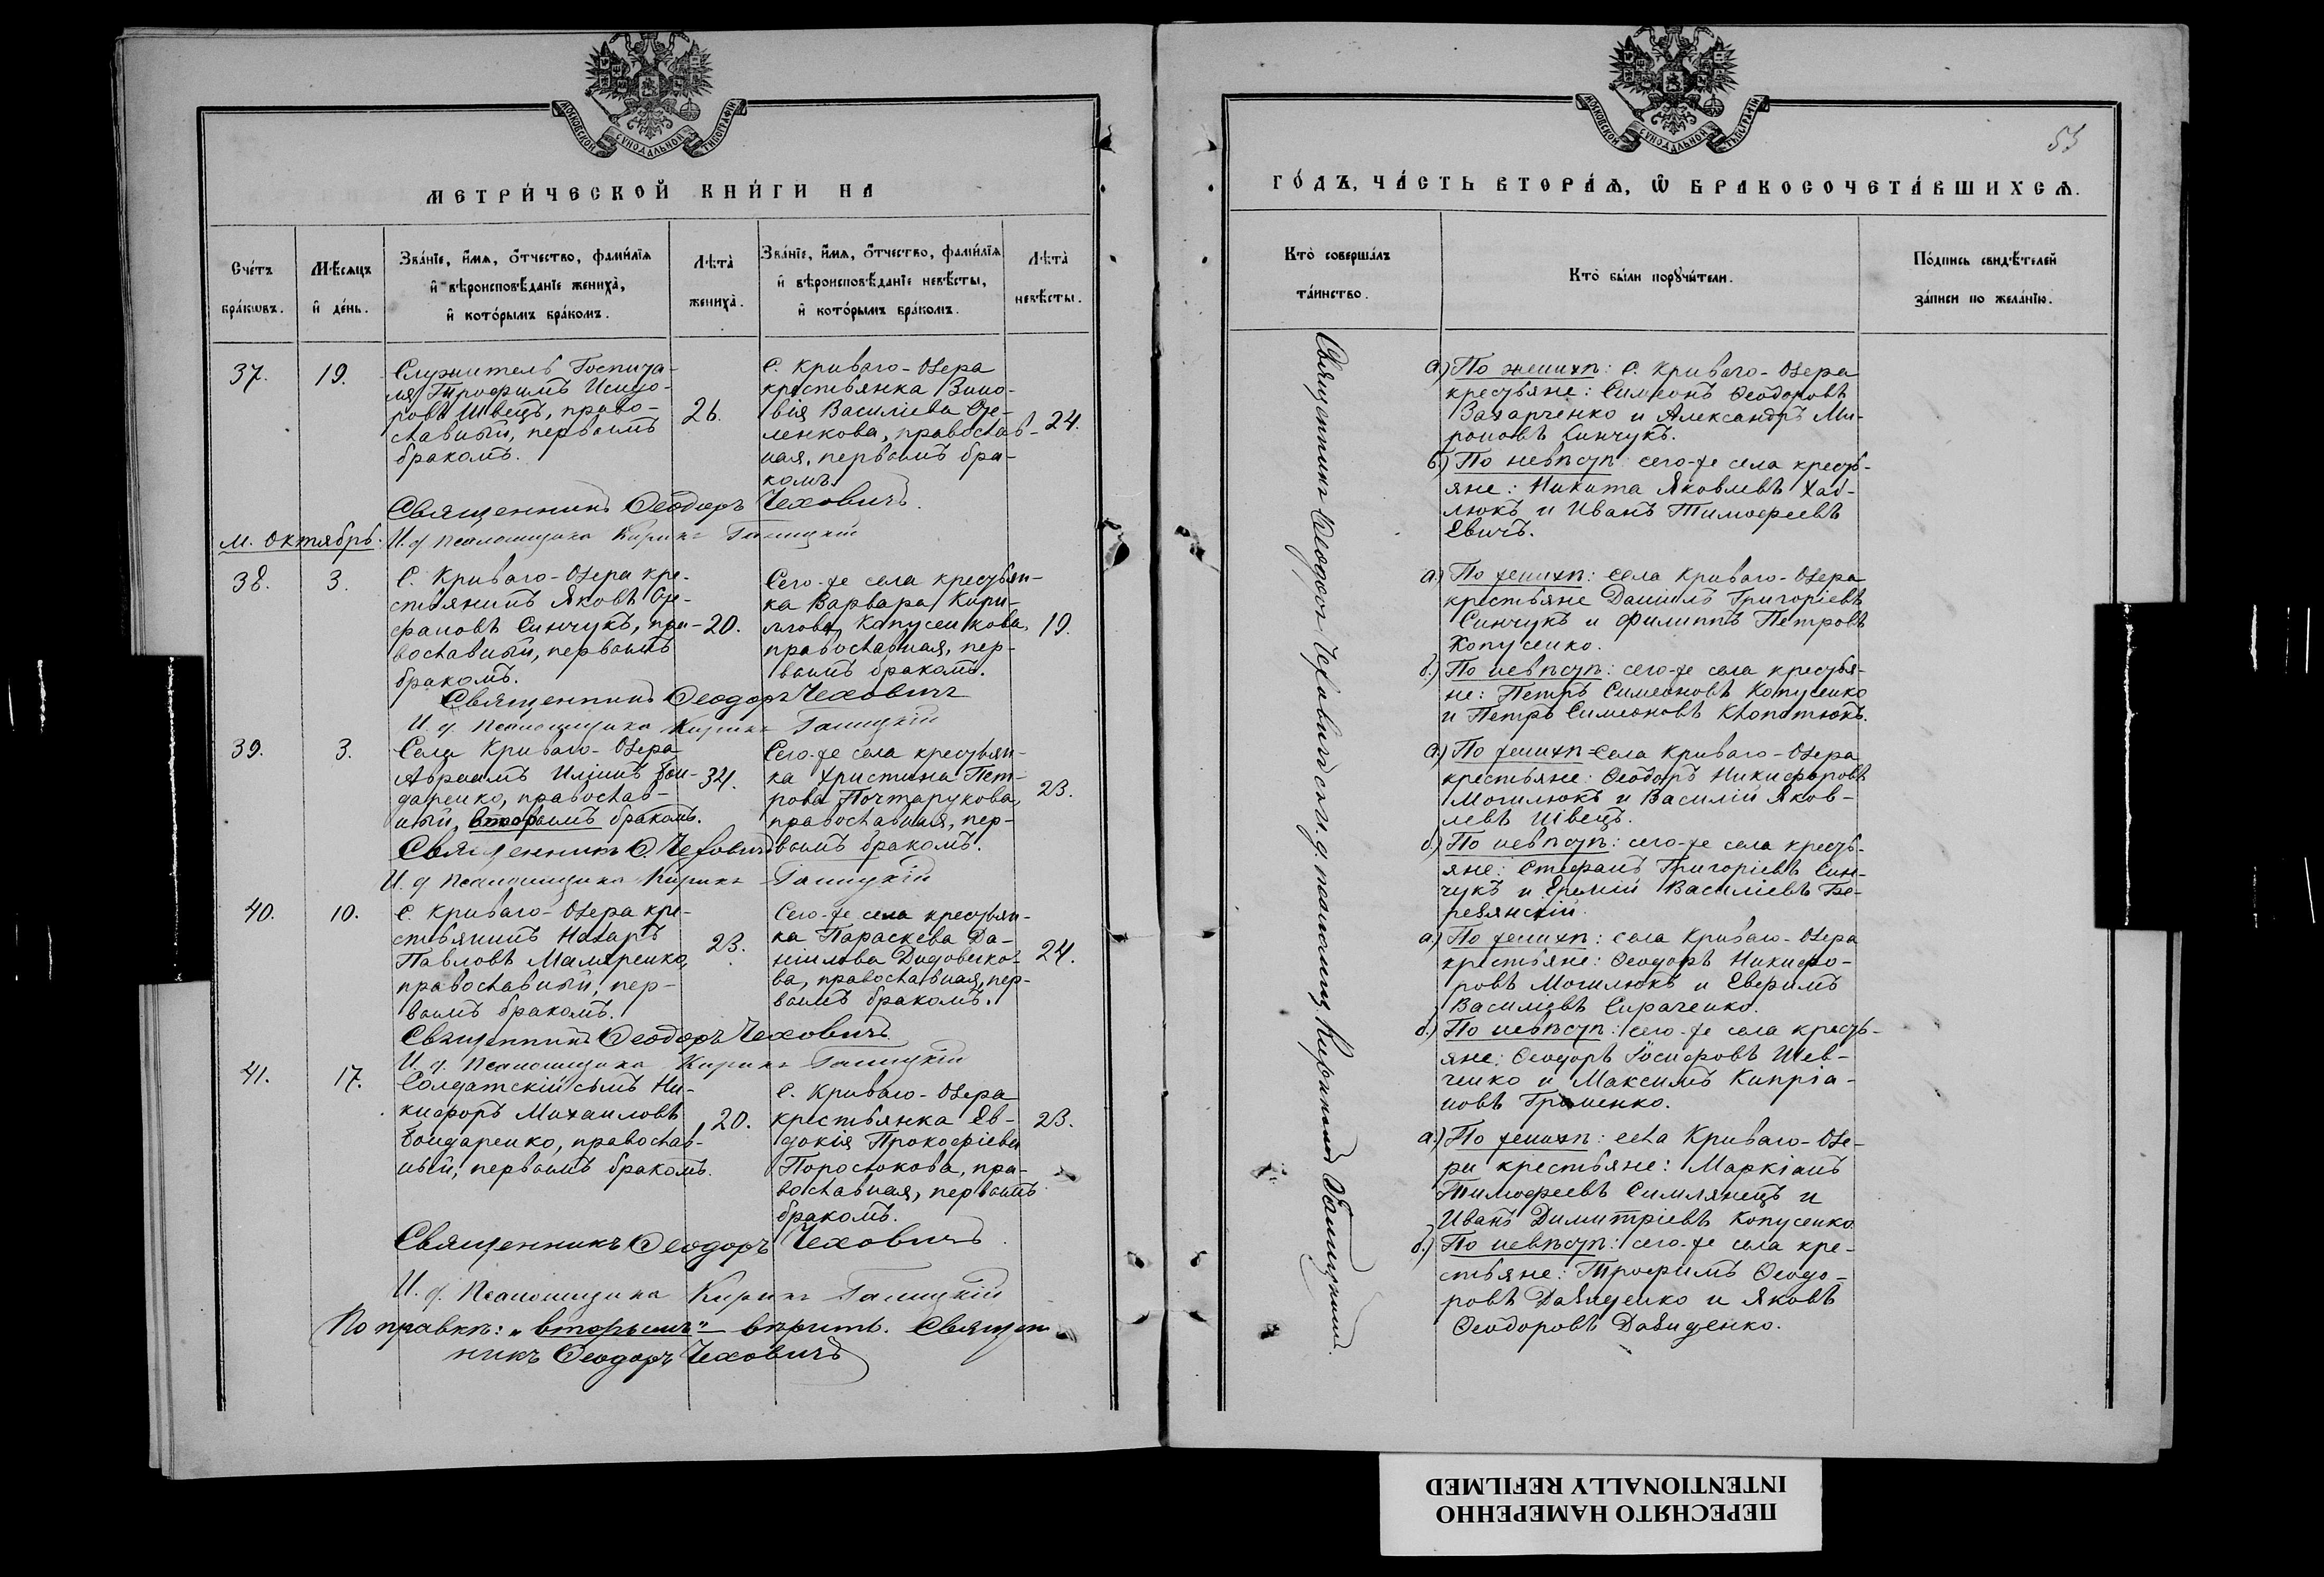 МОСКОВСКОЙ СѴНОДАЛЬНОЙ ТИПОГРАФІИ
МЕТРИ́ЧЕСКОЙ КНИ́ГИ НА
Сче́тъ бра́кѡвъ.
Мѣ́сяцъ и҆ де́нь.
Зва́нїе, и҆́мя, ѻ҆́тчество, фами́лїя и҆ вѣроисповѣ́данїе жениха̀, и҆ кото́рымъ бра́комъ.
Лѣта̀ жениха̀.
Зва́нїе, и҆́мя, ѻ҆́тчество, фами́лїя и҆ вѣроисповѣ́данїе невѣ́сты, и҆ кото́рымъ бра́комъ.
Лѣта̀ невѣ́сты.
37.
19.
Служитель Госпита-
ля Трофимъ Исидо-
ровъ Швецъ, право-
славный, первымъ
бракомъ.
26.
С. Криваго-Озера
крестьянка Зино-
вія Василіева
ленкова, православ-
ная, первымъ бра-
комъ.
24.
Священникъ Ѳеодоръ Чеховичъ.
м. Октябрь.
И. д. псаломщика Кирикъ Галицкій
38.
3.
С. Криваго-Озера кре-
стьянинъ Яковъ Сте-
фановъ Синчукъ, пра-
вославный, первымъ
бракомъ.
20.
Сего-же села крестьян-
ка Варвара Кири-
лова Копусенкова,
православная, пер-
вымъ бракомъ.
19.
Священникъ Ѳеодоръ Чеховичъ
И. д. псаломщика Кирикъ Галицкій
39.
3.
Села Криваго-Озера
Авраамъ Иліинъ Бон-
даренко, православ-
ный, вторымъ бракомъ.
34.
Сего-же села крестьян-
ка Христина Пет-
рова Почтарукова,
православная, пер-
вымъ бракомъ.
23.
Священникъ Ѳ. Чеховичъ
И. д. псаломщика Кирикъ Галицкій
40.
10.
С. Криваго-Озера кре-
стьянинъ Назаръ
Павловъ Маляренко,
православный, пер-
вымъ бракомъ.
23.
Сего-же села крестьян-
ка Параскева Да-
ніилова Дидовенко-
ва, православная, пер-
вымъ бракомъ.
24.
Священникъ Ѳеодоръ Чеховичъ
И. д. псаломщика Кирикъ Галицкій
41.
17.
Солдатскій сынъ Ни-
кифоръ Михаиловъ
Бондаренко, православ-
ный, первымъ бракомъ.
20.
С. Криваго-Озера
крестьянка Ев-
докія Прокофіева
Поростюкова, пра-
вославная, первымъ
бракомъ.
23.
Священникъ Ѳеодоръ Чеховичъ.
И. д. псаломщика Кирикъ Галицкій
По правкѣ: „вторымъ" вѣрить. Священ
никъ Ѳеодоръ Чеховичъ
МОСКОВСКОЙ СѴНОДАЛЬНОЙ ТИПОГРАФІИ
53
ГО́ДЪ, ЧА́СТЬ ВТОРА́Я, Ѡ҆ БРАКОСОЧЕТА́ВШИХСЯ.
Кто̀ соверша́лъ та́инство.
Кто̀ бы́ли порꙋчи́тели.
По́дпись свидѣ́телей за́писи по жела́нїю.
Священникъ Ѳеодоръ Чеховичъ съ и. д. псаломщ. Кирикомъ Галицкимъ.
а) По женихѣ: С. Криваго-Озера
крестьяне: Симеонъ Ѳеодоровъ
Захарченко и Александръ Ми-
роновъ Синчукъ.
б) По невѣстѣ: сего-же села кресть-
яне: Никита Яковлевъ Хав-
люкъ и Иванъ Тимофеевъ
Евичъ.
а) По женихѣ: села Криваго-Озера
крестьяне Даніилъ Григоріевъ
Синчукъ и Филиппъ Петровъ
Копусенко.
б.) По невѣстѣ: сего-же села крестья-
не: Петръ Симеоновъ Копусенко
и Петръ Симеоновъ Клопотюкъ.
а) По женихѣ села Криваго-Озера
крестьяне: Ѳеодоръ Никифоровъ
Могилюкъ и Василій Яков-
левъ Швецъ.
б) По невѣстѣ: сего-же села кресть-
яне: Стефанъ Григоріевъ Син-
чукъ и Еремій Василіевъ Бе-
резянскій.
а) По женихѣ: села Криваго-Озера
крестьяне: Ѳеодоръ Никифо-
ровъ Могилюкъ и Ефремъ
Василіевъ Сираченко.
б.) По невѣстѣ: сего-же села кресть-
яне: Ѳеодоръ Іосифовъ Шев-
ченко и Максимъ Кипріа-
новъ Гриненко.
а.) По женихѣ: села Криваго-Озе-
ра крестьяне: Маркіанъ
Тимофеевъ Симлянецъ и
Иванъ Димитріевъ Копусенко
б.) По невѣстѣ: сего-же села кре-
стьяне: Трофимъ Ѳеодо-
ровъ Давиденко и Яковъ
Ѳеодоровъ Давиденко.
ПЕРЕСНЯТО НАМЕРЕННО
INTENTIONALLY REFILMED